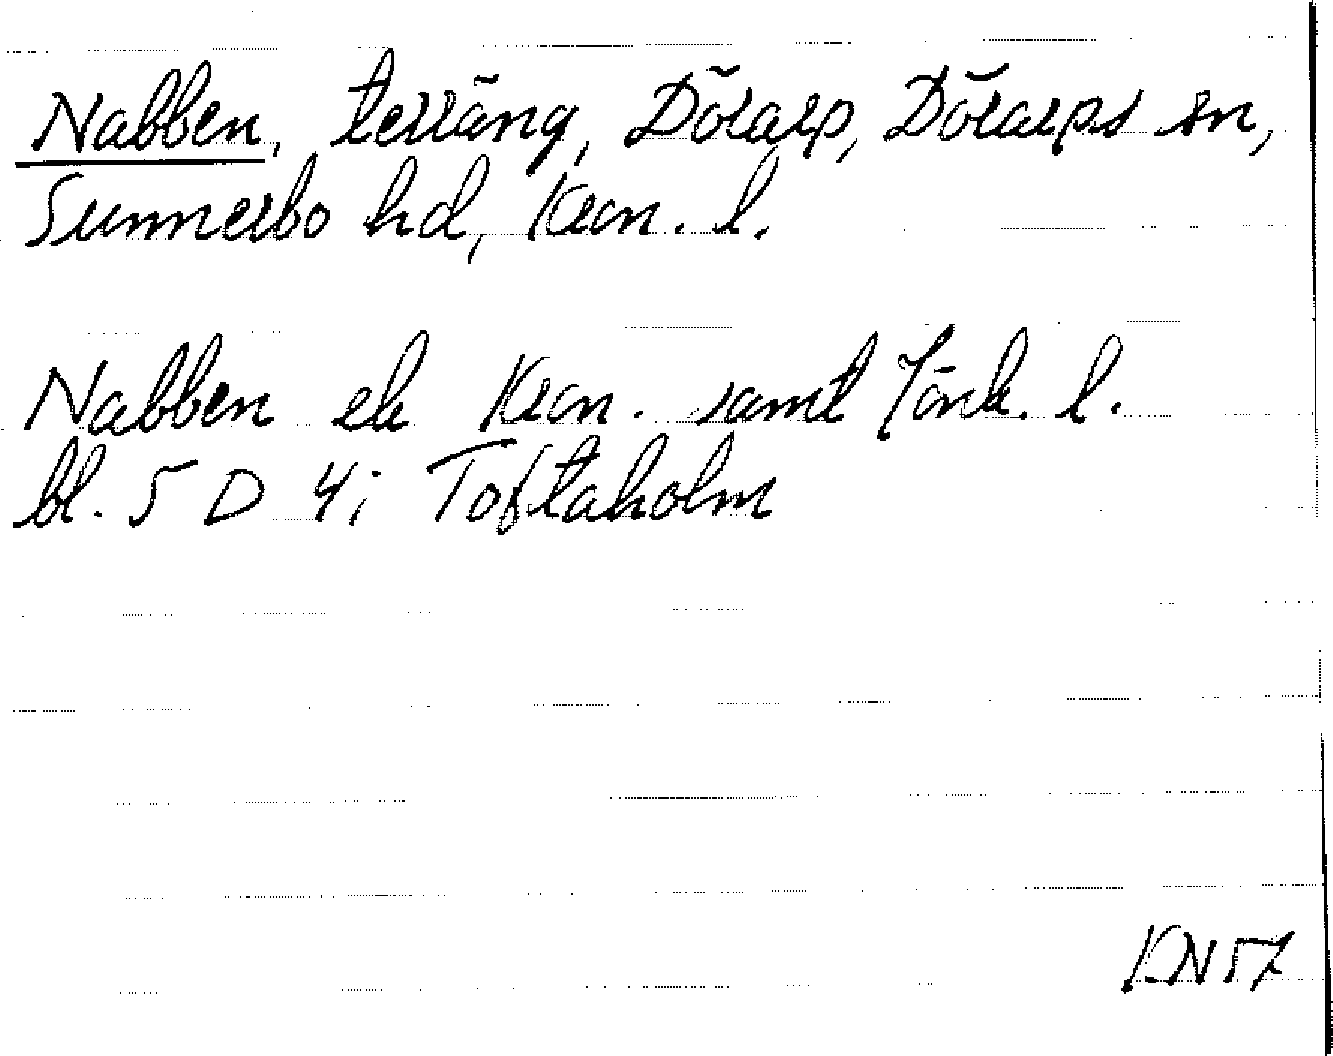 Nabben, terräng, Dörarp, Dörarps sn,
Sunnerbo hd, Kron. l.
Nabben ek Kron. samt Jönk. l.
bl. 5 D 4i Toftaholm
KN57